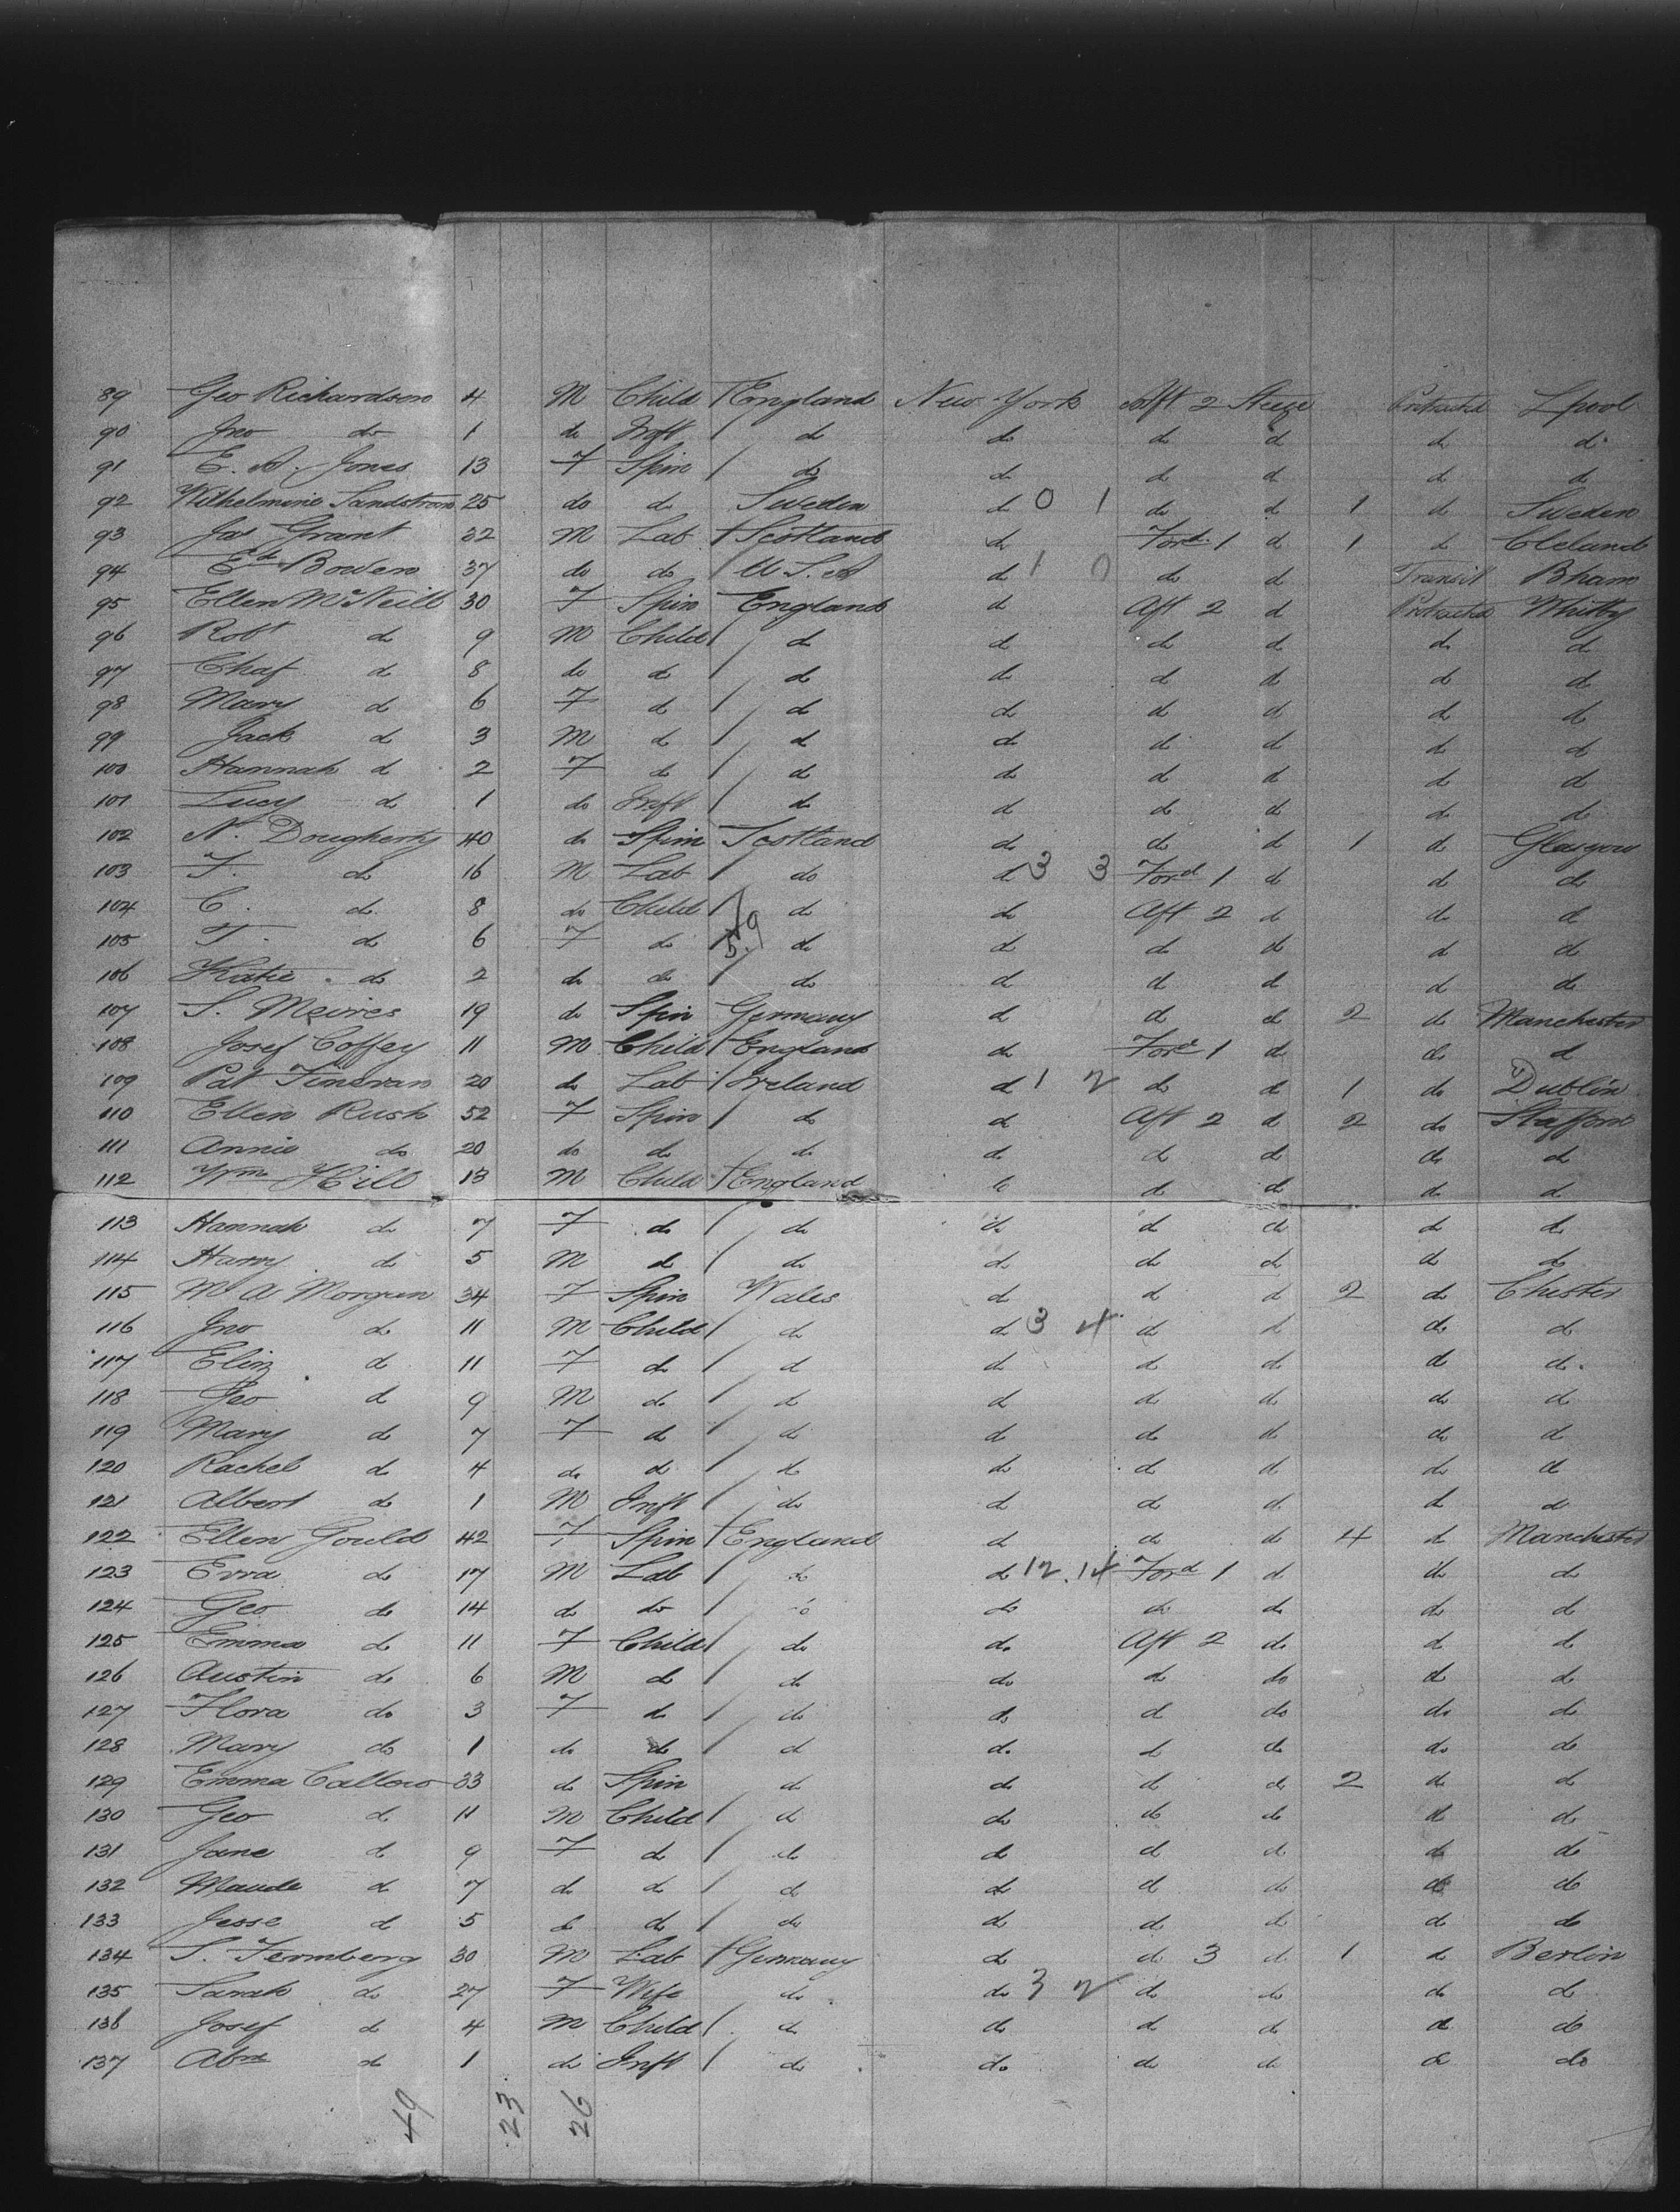 89 Geo Richardson 4 M Child England New York Aft 2 Steege Protracted Lpool
90 Jno do 1 do Inft do do do do do do
91 E. A. Jones 13 F Spin do do do do do do
92 Wilhelmine Sandstrom 25 do do Sweden do 0 1 do do 1 do Sweden
93 Jas Grant 32 M Lab Scotland do Ford 1 do 1 do Cleland
94 Ed Bowen 37 do do U.S.A do 1 0 do do Transit Bham
95 Ellen McNeill 30 F Spin England do Aft 2 do Protracted Whitby
96 Robt do 9 M Child do do do do do do
97 Chas do 8 do do do do do do do do
98 Mary do 6 F do do do do do do do
99 Jack do 3 M do do do do do do do
100 Hannah do 2 F do do do do do do do
101 Lucy do 1 do Inft do do do do do do
102 N. Dougherty 40 do Spin Scotland do do do 1 do Glasgow
103 F. do 16 M Lab do do 3 3 Ford 1 do do do
104 C. do 8 do Child do do Aft 2 do do do
105 T. do 6 F do do do do do do do
106 Katie do 2 do do do do do do do do
107 S. Meires 19 do Spin Germany do do do 2 do Manchester
108 Josef Coffey 11 M Child England do Ford 1 do do do
109 Pat Fineran 20 do Lab Ireland do 1 2 do do 1 do Dublin
110 Ellen Rush 52 F Spin do do Aft 2 do 2 do Stafford
111 Annie do 20 do do do do do do do do
112 Wm Hill 13 M Child England do do do do do
113 Hannah do 7 F do do do do do do do
114 Harry do 5 M do do do do do do do
115 M A Morgan 34 F Spin Wales do do do 2 do Chester
116 Jno do 11 M Child do do 3 4 do do do do
117 Eliz do 11 F do do do do do do do
118 Geo do 9 M do do do do do do do
119 Mary do 7 F do do do do do do do
120 Rachel do 4 do do do do do do do do
121 Albert do 1 M Inft do do do do do do
122 Ellen Gould 42 F Spin England do do do 4 do Manchester
123 Ezra do 17 M Lab do do 12.14 Ford 1 do do do
124 Geo do 14 do do do do do do do do
125 Emma do 11 F Child do do Aft 2 do do do
126 Austin do 6 M do do do do do do do
127 Flora do 3 F do do do do do do do
128 Mary do 1 do do do do do do do do
129 Emma Callow 33 do Spin do do do do 2 do do
130 Geo do 11 M Child do do do do do do
131 Jane do 9 F do do do do do do do
132 Maude do 7 do do do do do do do do
133 Jesse do 5 do do do do do do do do
134 S. Fermberg 30 M Lab Germany do do 3 do 1 do Berlin
135 Sarah do 27 F Wife do do 3 2 do do do do
136 Josef do 4 M Child do do do do do do
137 Abm do 1 do Inft do do do do do do
49 23 26